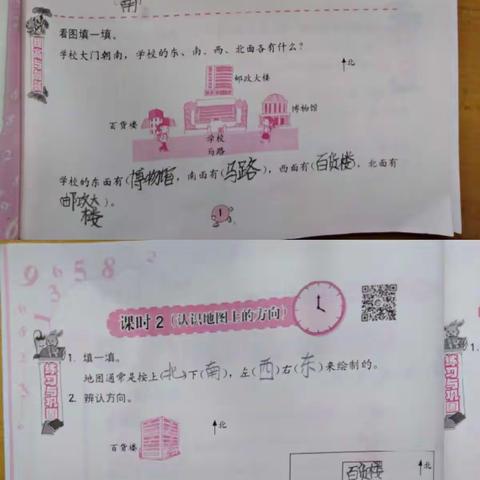 南
看图填一填。
学校大门朝南，学校的东、南、西、北面各有什么？
北
邮政大楼
博物馆
百货楼
学校
马路
学校的东面有(博物馆)，南面有(马路)，西面有(百货楼)，北面有
(邮政大楼)。
1
9 6 5 8
3
1
课时2(认识地图上的方向)
练习与巩固
1. 填一填。
地图通常是按上(北)下(南)，左(西)右(东)来绘制的。
2. 辨认方向。
北
百货楼
百货楼
北
1.
练习与巩固